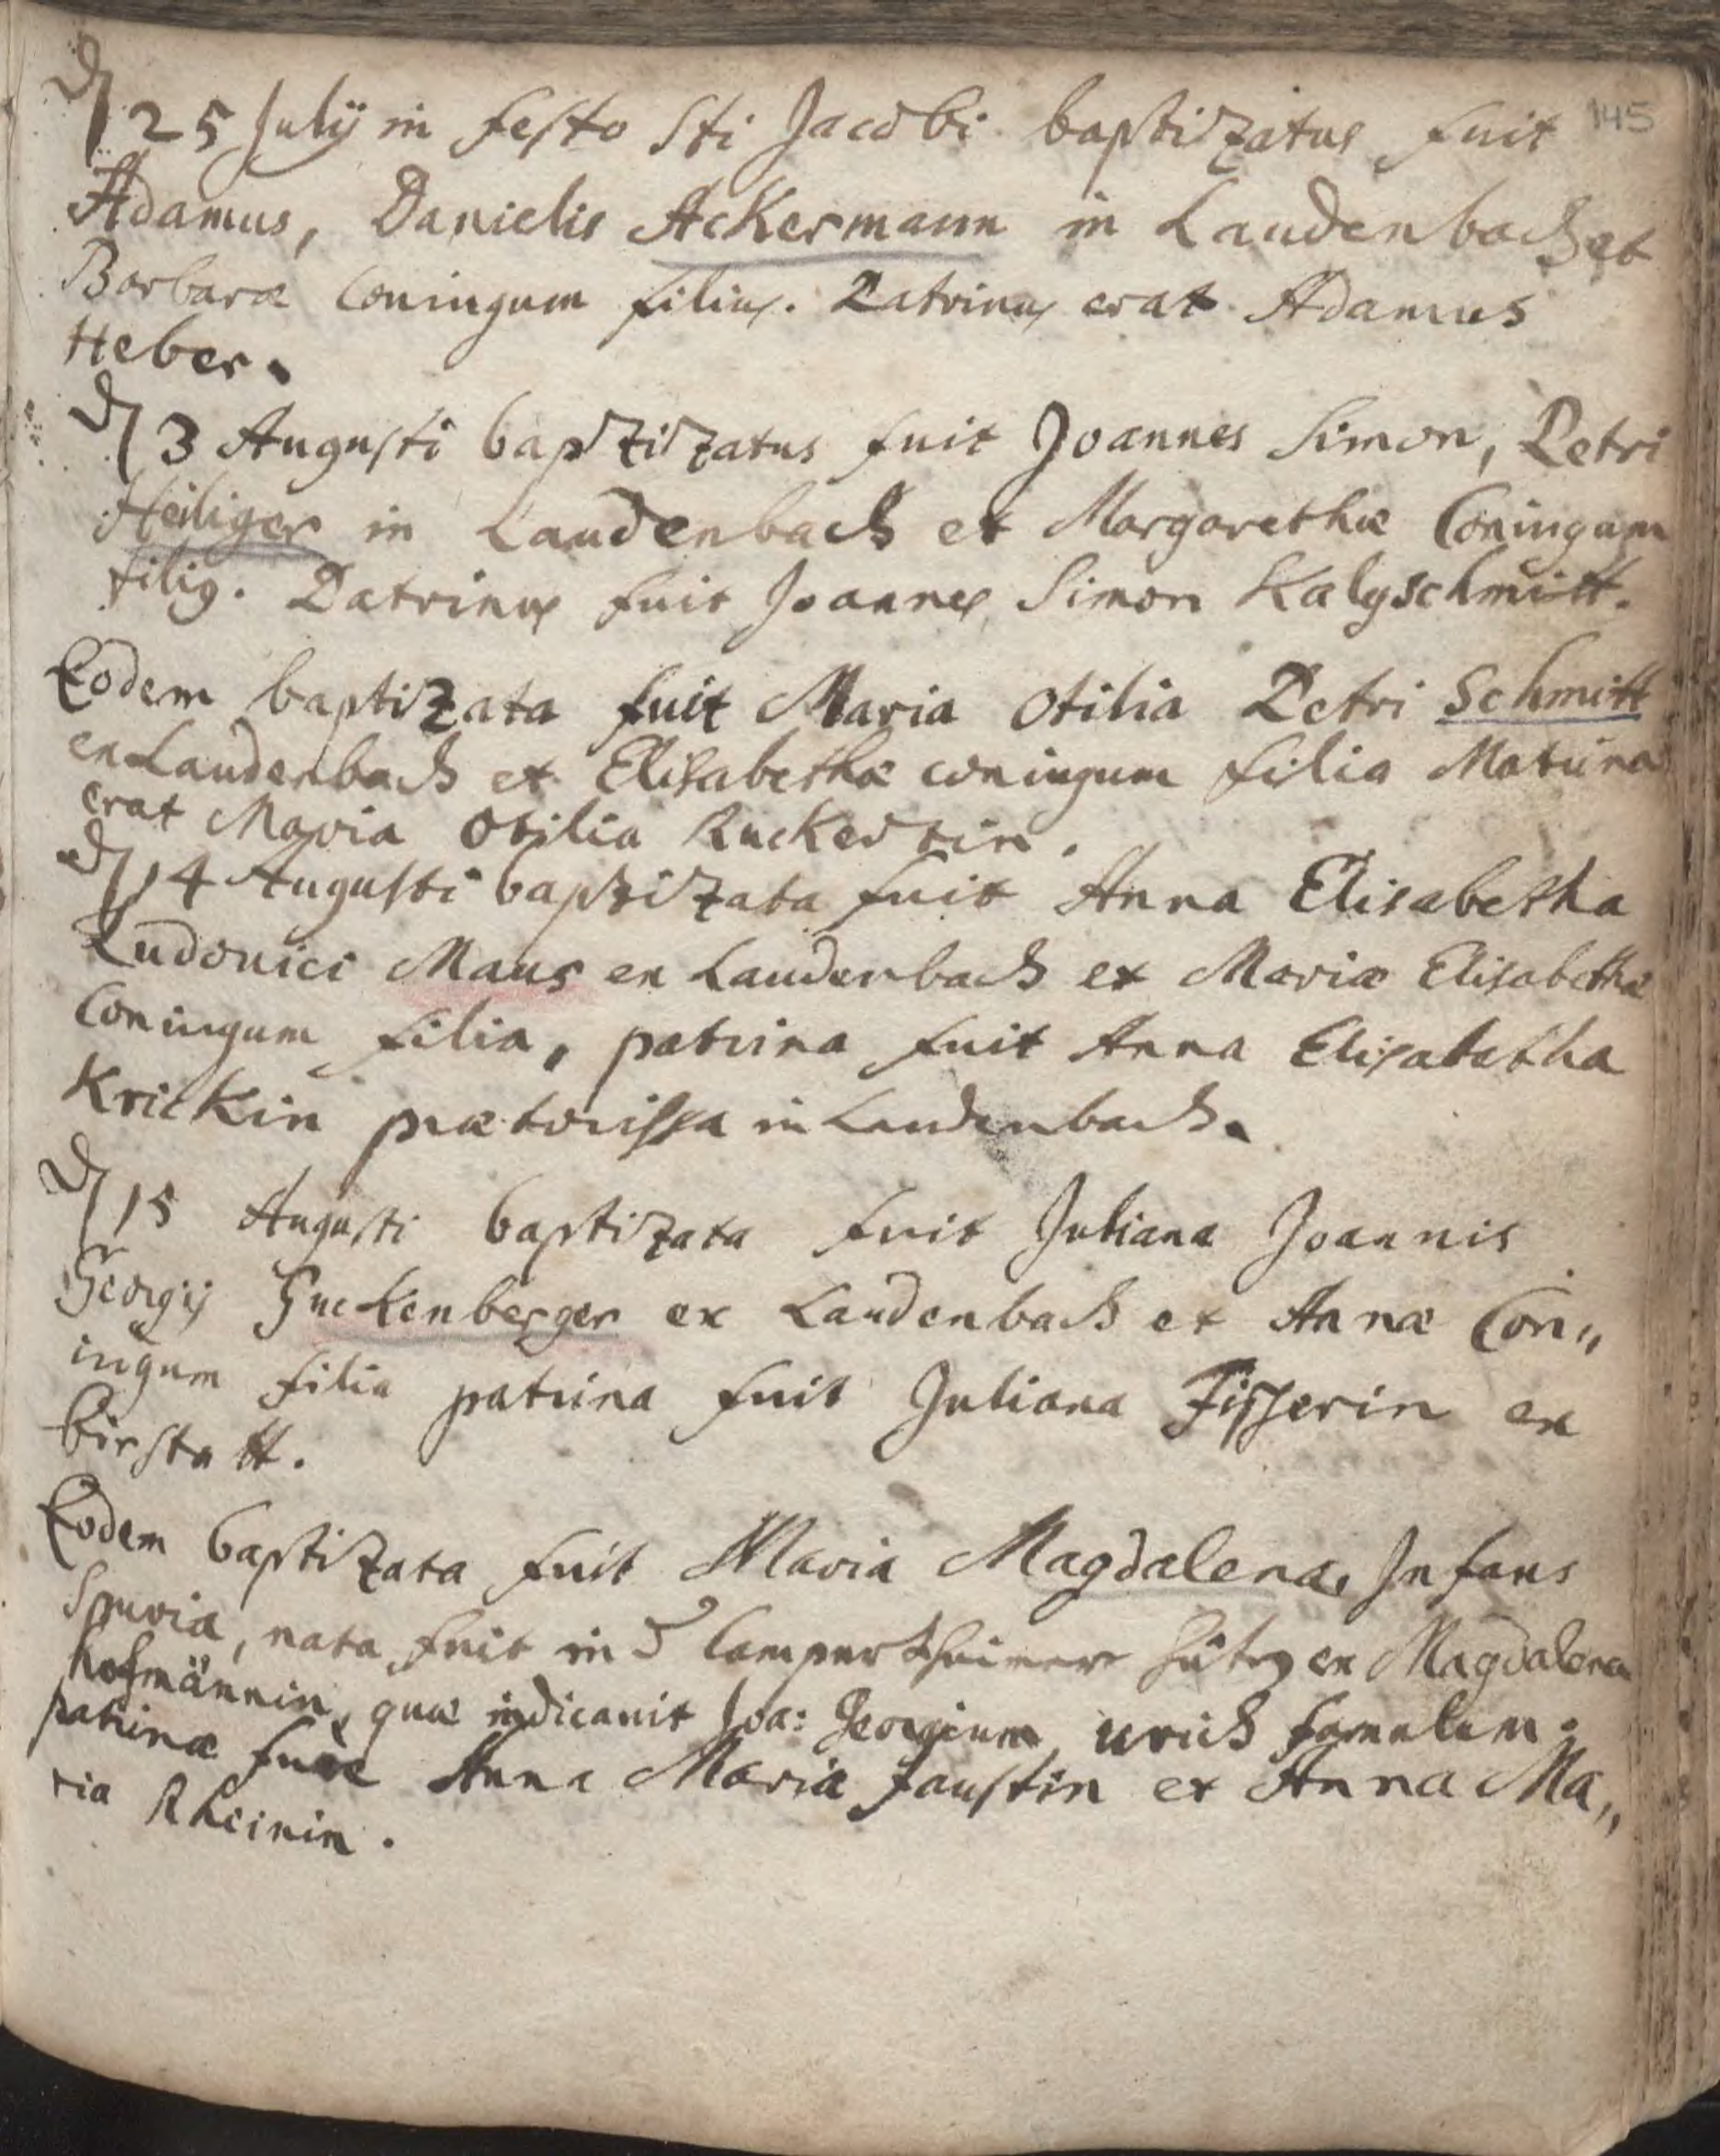 d 25 Julij in festo Sti Jacobi baptizatus fuit 145
Adamus, Danielis Ackermann in Laudenbach et
Barbaræ Coniugum filius. Patrinus erat Adamus
Heber.
d 3 Augusti baptizatus fuit Joannes Simon, Petri
Heiliger in Laudenbach et Margarethæ Coniugum
filig. Patrinus fuit Joannes Simon Kalyschmitt.
Eodem baptizata fuit Maria Otilia Petri Schmitt
ex Laudenbach et Elisabethæ coniugum filia Matrina
erat Maria Otilia Ruckertin.
d 14 Augusti baptizata fuit Anna Elisabetha
Ludouici Maus ex Laudenbach et Mariæ Elisabethæ
Coniugum filia, patrina fuit Anna Elisabetha
Krickin prætorissa in Laudenbach.
d 15 Augusti baptizata fuit Juliana Joannis
Georgij Guckenberger ex Laudenbach et Annæ Con,,
iugum filia patrina fuit Juliana Fisserin ex
birstatt.
Eodem baptizata fuit Maria Magdalena, Infans
Spuria, nata fuit in Lampertheimer ex Magdalena
hofmännin, quæ indicauit Joa: Georgium urich famulum.
patrinæ fuere Anna Maria faustin et Anna Ma,,
ria Rheinin.